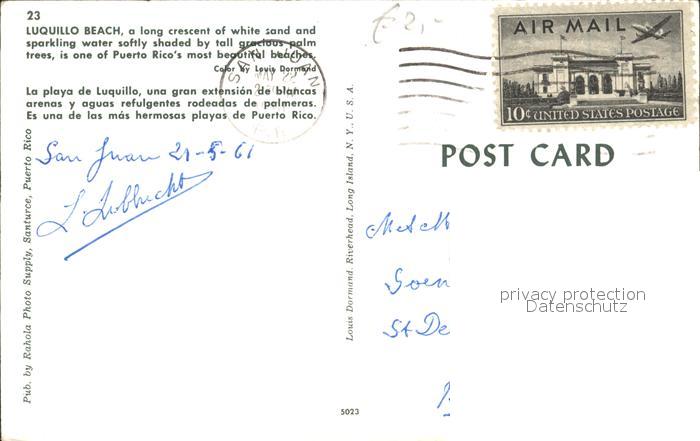 23
LUQUILLO BEACH, a long crescent of white sand and
sparkling water softly shaded by tall gracious palm
trees, is one of Puerto Rico's most beautiful beaches.
Color by Louis Dormand
La playa de Luquillo, una gran extensión de blancas
arenas y aguas refulgentes rodeadas de palmeras.
Es una de las más hermosas playas de Puerto Rico.
San Juan 21-5-61
Pub. by Rahola Photo Supply, Santurce, Puerto Rico
Louis Dormand, Riverhead, Long Island, N. Y., U. S. A.
5023
€ 2,-
SAN JUAN
MAY 22
AIR MAIL
10¢ UNITED STATES POSTAGE
POST CARD
Goen
St De
privacy protection
Datenschutz